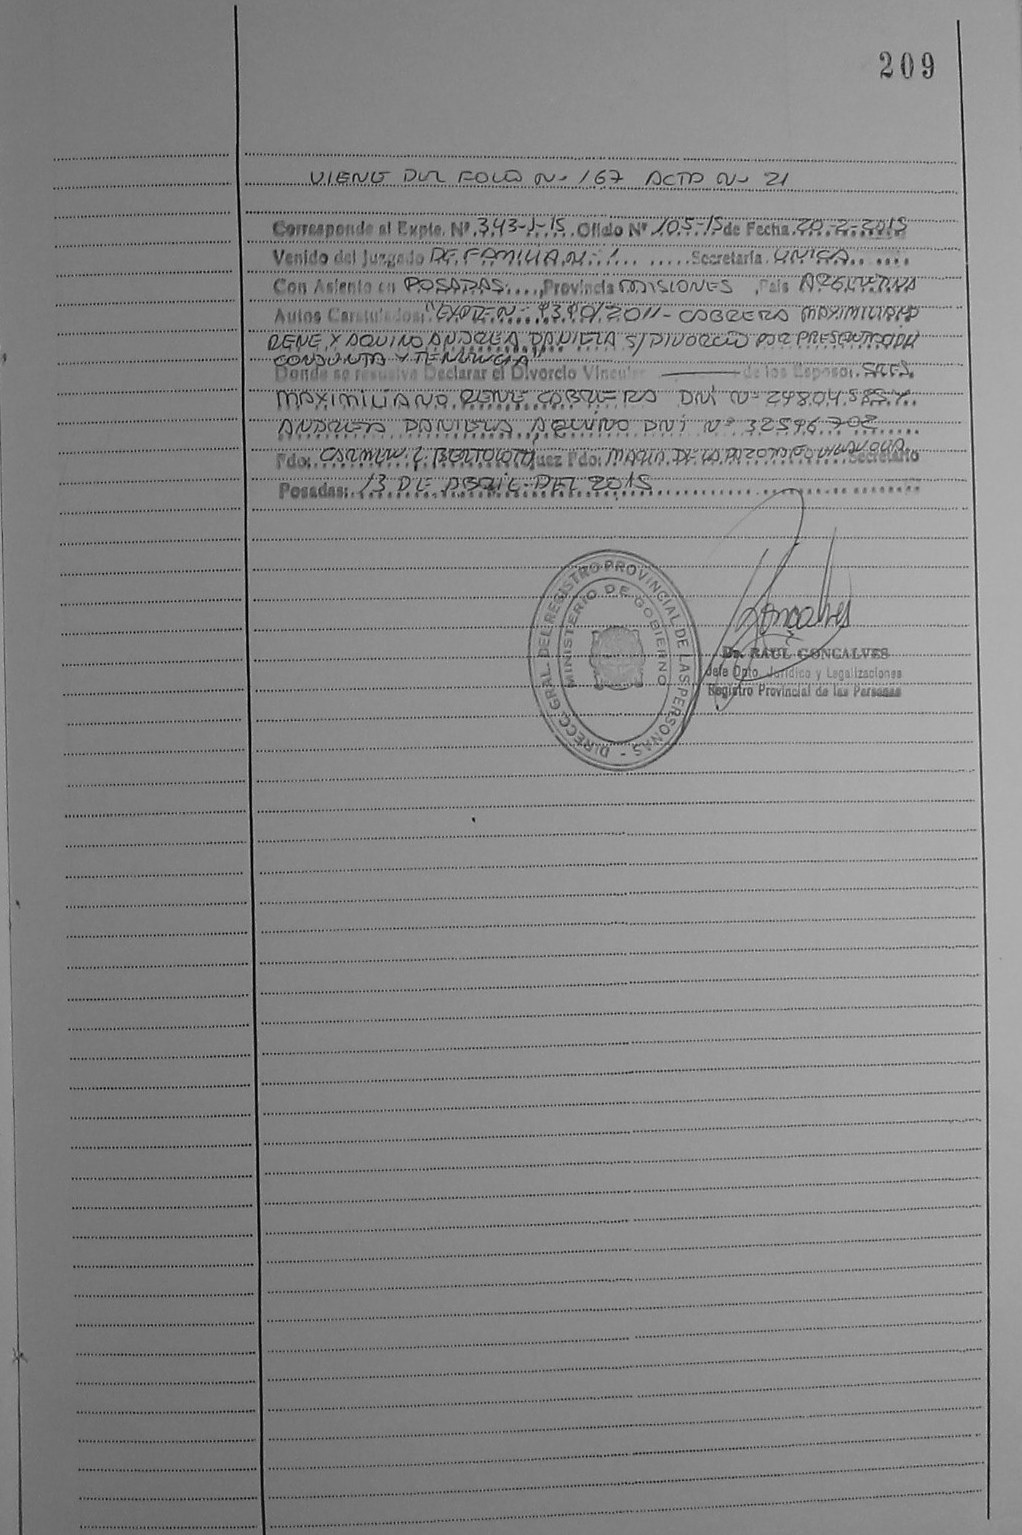 209
VIENE DEL FOLIO Nº 167 ACTA Nº 21
Corresponde al Expte. Nº 343-J-15. Oficio Nº 105-15 de Fecha 20-2-2015
Venido del Juzgado DE FAMILIA Nº 1 Secretaría UNICA
Con Asiento en POSADAS, Provincia MISIONES, País ARGENTINA
Autos Caratulados: "EXPTE Nº /2011 - CABRERA MAXIMILIANO
RENE Y AQUINO ANDREA DANIELA S/ DIVORCIO POR PRESENTACION
CONJUNTA Y TENENCIA"
Donde se resuelve Declarar el Divorcio Vincular de los Esposos: SRES.
MAXIMILIANO RENE CABRERA DNI Nº Y
ANDREA DANIELA AQUINO DNI Nº 32596
Fdo: CARMEN Juez Fdo: MARIA DE Secretario
Posadas: 13 DE ABRIL DEL 2015
DIRECC. GRAL. DEL REGISTRO PROVINCIAL DE LAS PERSONAS -
MINISTERIO DE GOBIERNO
Goncalves
Dr. RAUL GONCALVES
Jefe Dpto. Jurídico y Legalizaciones
Registro Provincial de las Personas